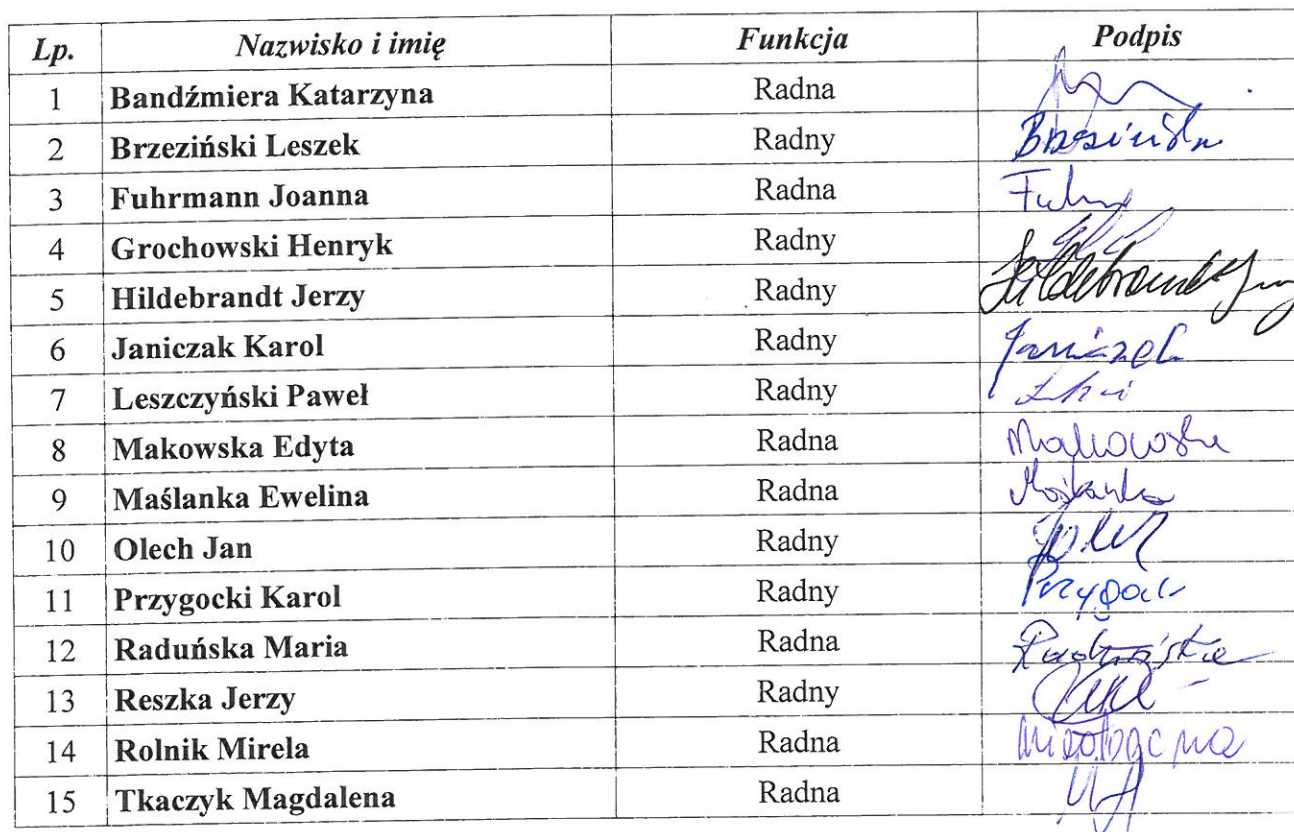 Lp. Nazwisko i imię Funkcja Podpis
1 Bandźmiera Katarzyna Radna
2 Brzeziński Leszek Radny Brzeziński
3 Fuhrmann Joanna Radna
4 Grochowski Henryk Radny
5 Hildebrandt Jerzy Radny Hildebrandt
6 Janiczak Karol Radny Janiczak
7 Leszczyński Paweł Radny
8 Makowska Edyta Radna Makowska
9 Maślanka Ewelina Radna Maślanka
10 Olech Jan Radny
11 Przygocki Karol Radny
12 Raduńska Maria Radna Raduńska
13 Reszka Jerzy Radny
14 Rolnik Mirela Radna nieobecna
15 Tkaczyk Magdalena Radna